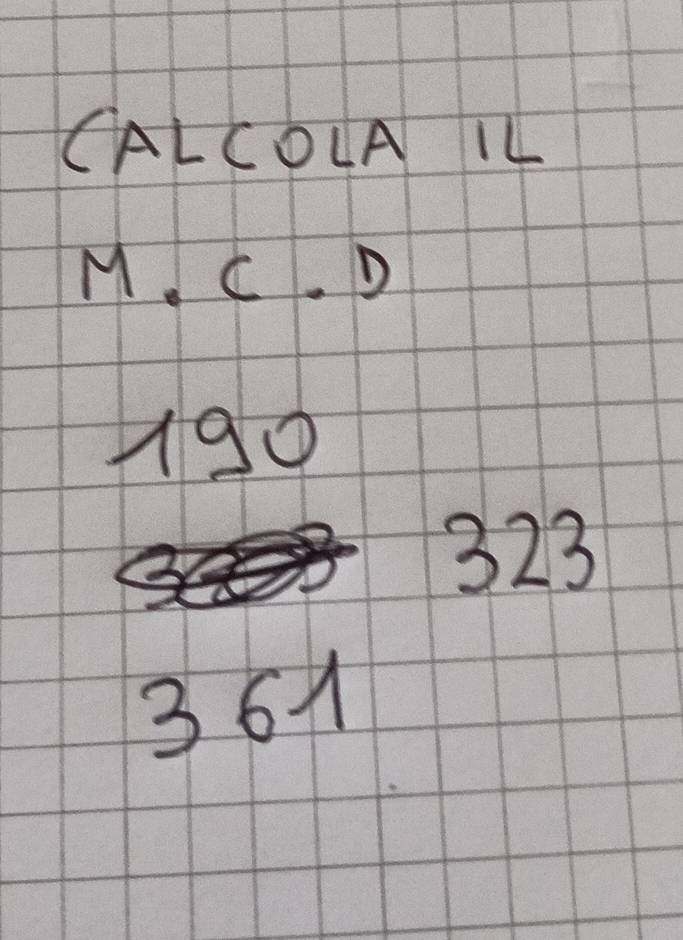 CALCOLA IL
M.C.D
190
323
361